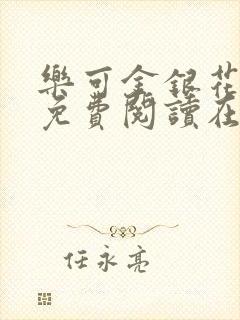 樂可金銀花
免費閱讀在
任永亮